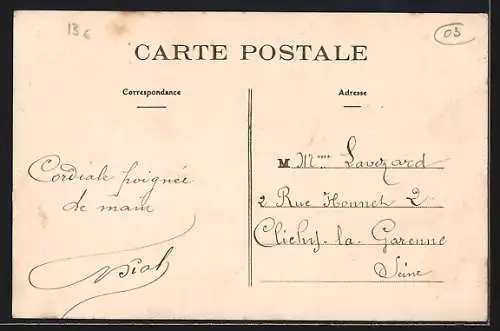 13€
03
CARTE POSTALE
Correspondance
Adresse
Cordiale poignée
de main
M Mme Lavozard
2 Rue Honnet 2
Clichy-la-Garenne
Seine